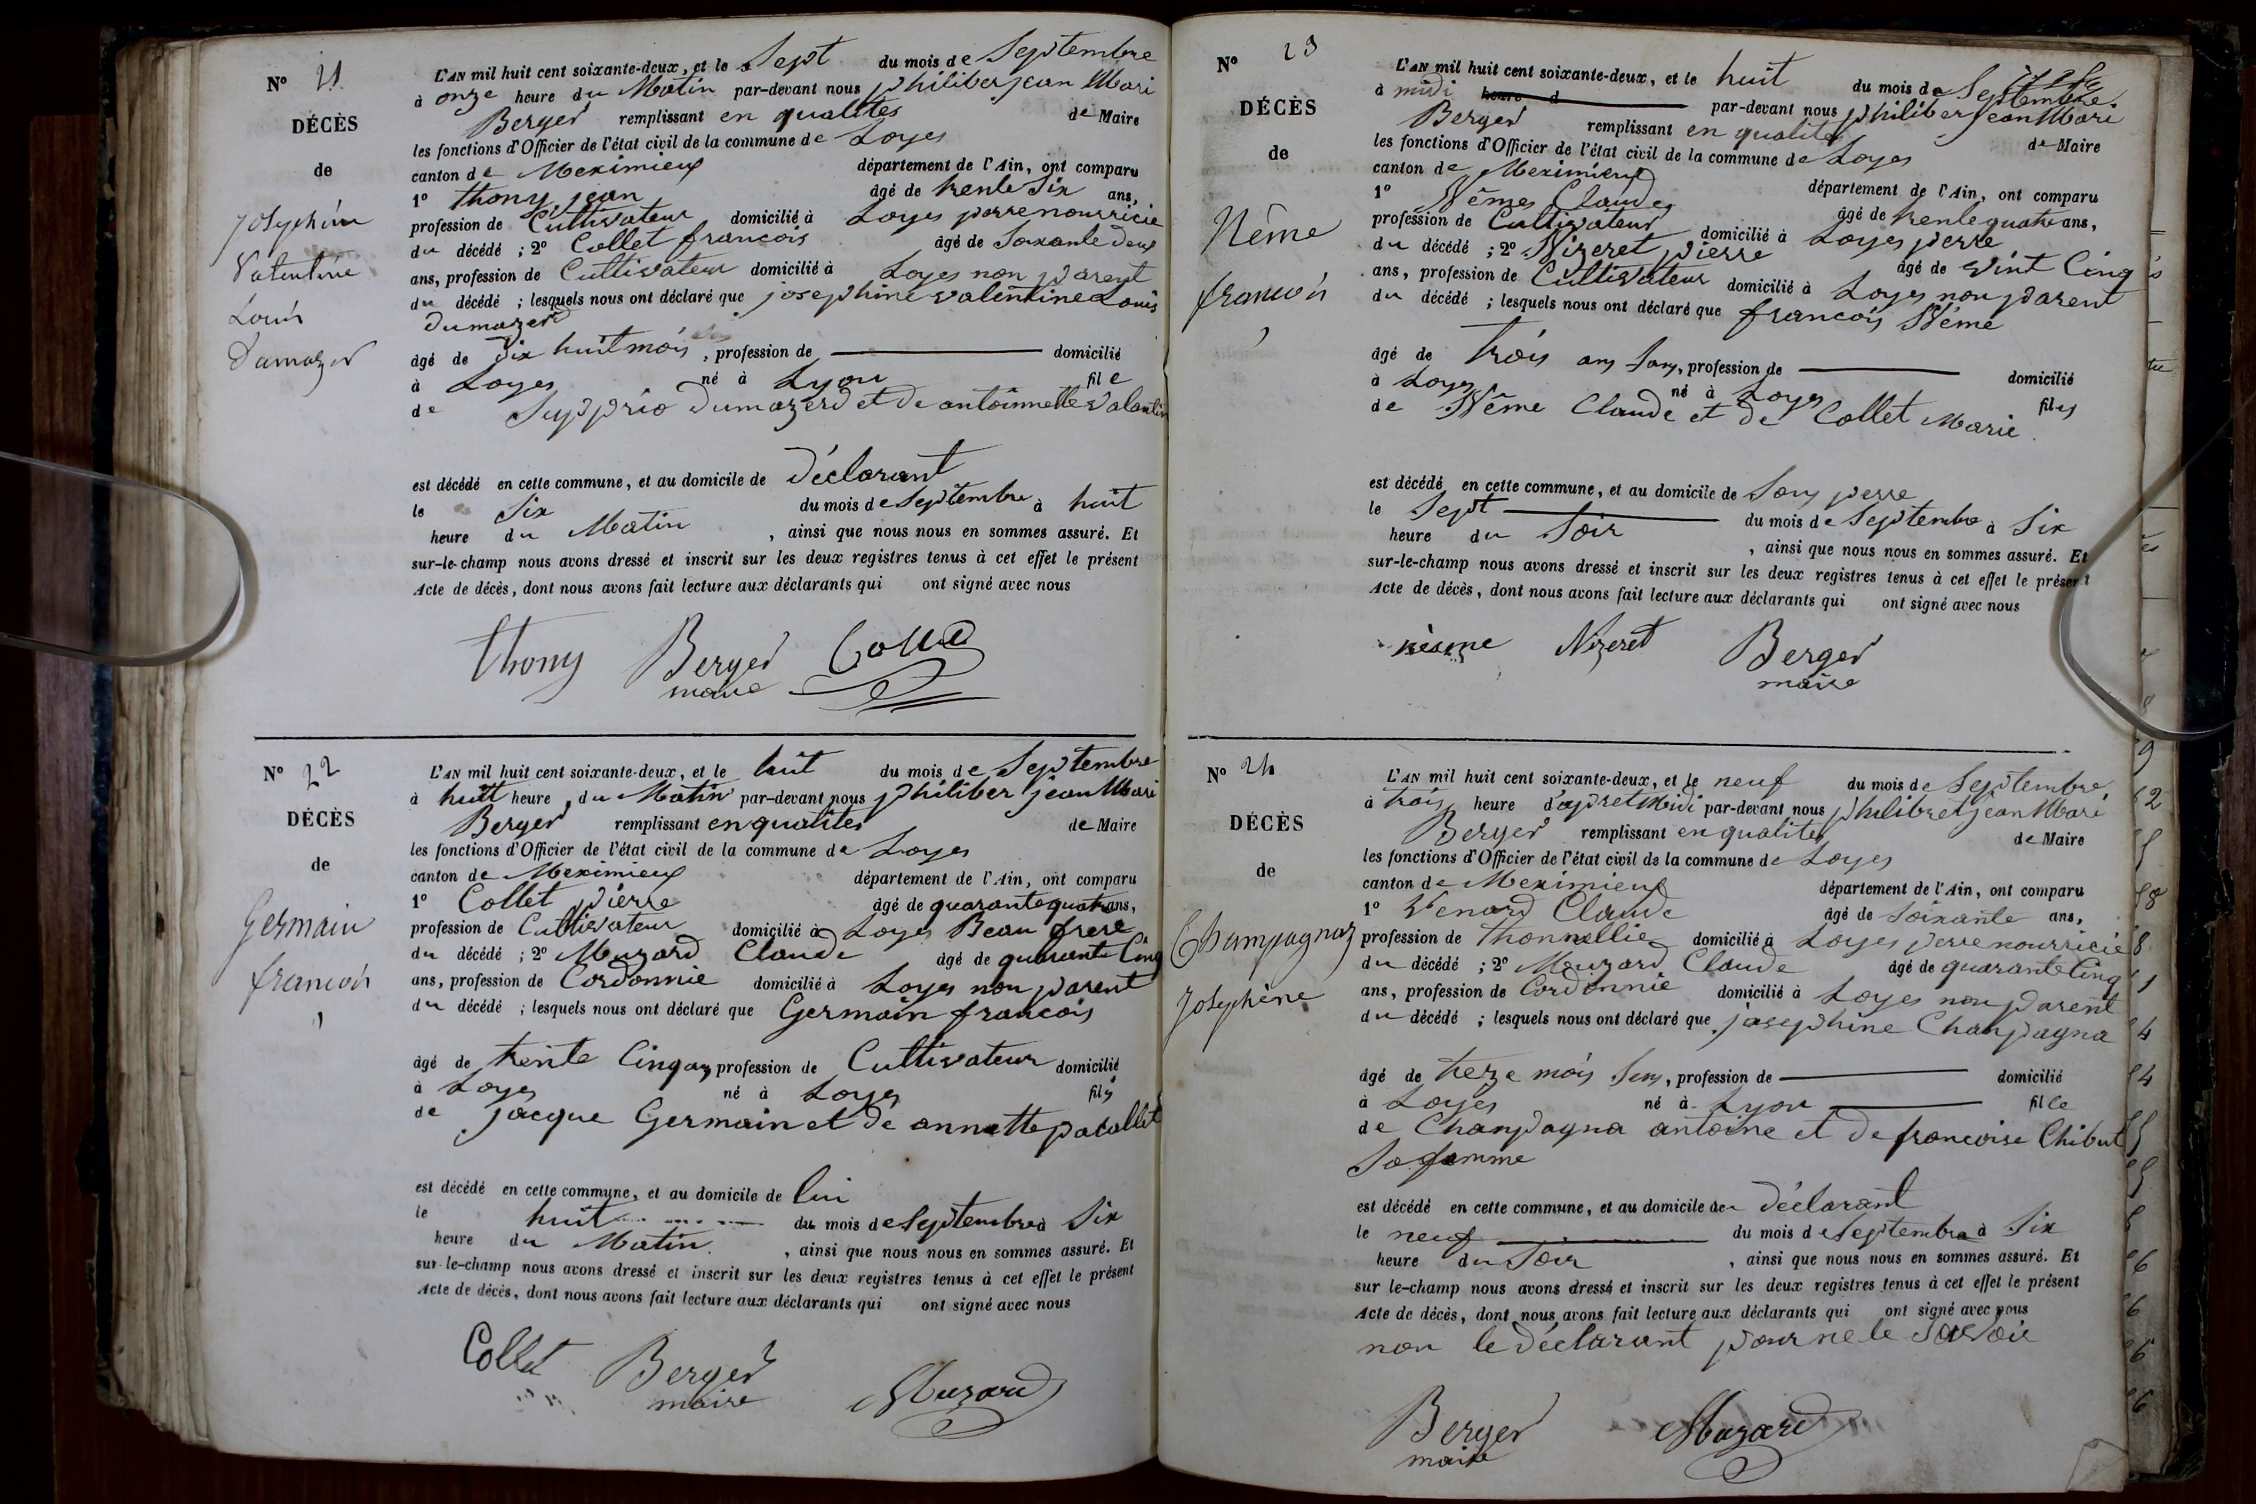 N° 21
DÉCÈS
de
Josephine
Valentine
Louis
Dumazer
L'AN mil huit cent soixante-deux, et le Sept du mois de Septembre
à onze heure du Matin par-devant nous philiber jean Mari
Berger remplissant en qualites de Maire
les fonctions d'Officier de l'état civil de la commune de Loyes
canton de Meximieux département de l'Ain, ont comparu
1° thony jean âgé de trente Six ans,
profession de Cultivateur domicilié à Loyes perre nourricie
du décédé ; 2° Collet francois âgé de Soixante deux
ans, profession de Cultivateur domicilié à Loyes non parent
du décédé ; lesquels nous ont déclaré que josephine valentine Louis
Dumazerd
âgé de Dix huit mois , profession de domicilié
à Loyes né à Lyon fil e
de Supprio Dumazerd et de antoinnette Valantin
est décédé en cette commune, et au domicile de Déclarant
le Six du mois de Septembre à huit
heure du Matin , ainsi que nous nous en sommes assuré. Et
sur-le-champ nous avons dressé et inscrit sur les deux registres tenus à cet effet le présent
Acte de décès, dont nous avons fait lecture aux déclarants qui ont signé avec nous
thony Berger Collet
maire
N° 22
DÉCÈS
de
Germain
francois
L'AN mil huit cent soixante-deux, et le huit du mois de Septembre
à huit heure , du Matin par-devant nous philiber jean Mari
Berger remplissant en qualites de Maire
les fonctions d'Officier de l'état civil de la commune de Loyes
canton de Meximieux département de l'Ain, ont comparu
1° Collet pierre âgé de quarante quatre ans,
profession de Cultivateur domicilié à Loyes Beau frere
du décédé ; 2° Muzard Claude âgé de quarante Cinq
ans, profession de Cordonnie domicilié à Loyes non parent
du décédé ; lesquels nous ont déclaré que Germain francois
âgé de trente Cinq ans, profession de Cultivateur domicilié
à Loyes né à Loyes fils
de jacque Germain et de annette pacallet
est décédé en cette commune, et au domicile de lui
le huit du mois de Septembre à Six
heure du Matin. , ainsi que nous nous en sommes assuré. Et
sur-le-champ nous avons dressé et inscrit sur les deux registres tenus à cet effet le présent
Acte de décès, dont nous avons fait lecture aux déclarants qui ont signé avec nous
Collet Berger Muzard
maire
N° 23
DÉCÈS
de
Nême
francois
L'AN mil huit cent soixante-deux, et le huit du mois de Septembre.
à midi heure d par-devant nous philiber jean Mari
Berger remplissant en qualite de Maire
les fonctions d'Officier de l'état civil de la commune de Loyes
canton de Meximieux département de l'Ain, ont comparu
1° Nêmes Claude âgé de trente quatre ans,
profession de Cultivateur domicilié à Loyes perre
du décédé ; 2° Nizeret pierre âgé de vint Cinq
ans, profession de Cultivateur domicilié à Loyes non parent
du décédé ; lesquels nous ont déclaré que francois Nême
âgé de trois ans Sans, profession de domicilié
à Loyes né à Loyes fils
de Nême Claude et de Collet Marie.
est décédé en cette commune, et au domicile de Sons perre
le Sept du mois de Septembre à Six
heure du Soir , ainsi que nous nous en sommes assuré. Et
sur-le-champ nous avons dressé et inscrit sur les deux registres tenus à cet effet le présent
Acte de décès, dont nous avons fait lecture aux déclarants qui ont signé avec nous
nèsme Nizeret Berger
maire
N° 24
DÉCÈS
de
Champagnaz
Josephine
L'AN mil huit cent soixante-deux, et le neuf du mois de Septembre
à trois heure d'apret Midi par-devant nous philibret jean Mari
Berger remplissant en qualites de Maire
les fonctions d'Officier de l'état civil de la commune de Loyes
canton de Meximieux département de l'Ain, ont comparu
1° Venard Claude âgé de Soixante ans,
profession de thonnellie domicilié à Loyes perre nourricié
du décédé ; 2° Mouzard Claude âgé de quarante Cinq
ans, profession de Cordonnie domicilié à Loyes non parent
du décédé ; lesquels nous ont déclaré que josephine Chanpagna
âgé de treze mois Sens, profession de domicilié
à Loyes né à Lyon fille
de Chanpagna antoine et de francoise Chibut
Sa famme
est décédé en cette commune, et au domicile de Déclarant
le neuf du mois de Septembre à Six
heure du Soir , ainsi que nous nous en sommes assuré. Et
sur-le-champ nous avons dressé et inscrit sur les deux registres tenus à cet effet le présent
Acte de décès, dont nous avons fait lecture aux déclarants qui ont signé avec nous
non le déclarant pour ne le savoir
Berger Muzard
maire